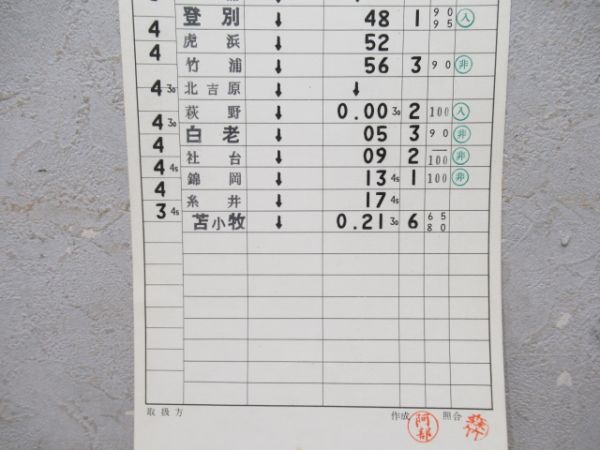 登別 ↓ 48 1 90 95 入
4
虎浜 ↓ 52
4
竹浦 ↓ 56 3 90 非
北吉原 ↓ ↓
4 30
萩野 ↓ 0.00 30 2 100 入
4 30
白老 ↓ 05 3 90 非
4
社台 ↓ 09 2 100 非
4 45
錦岡 ↓ 13 45 1 100 非
4
糸井 ↓ 17 45
3 45
苫小牧 ↓ 0.21 30 6 65 80
取扱方 作成 阿部 照合